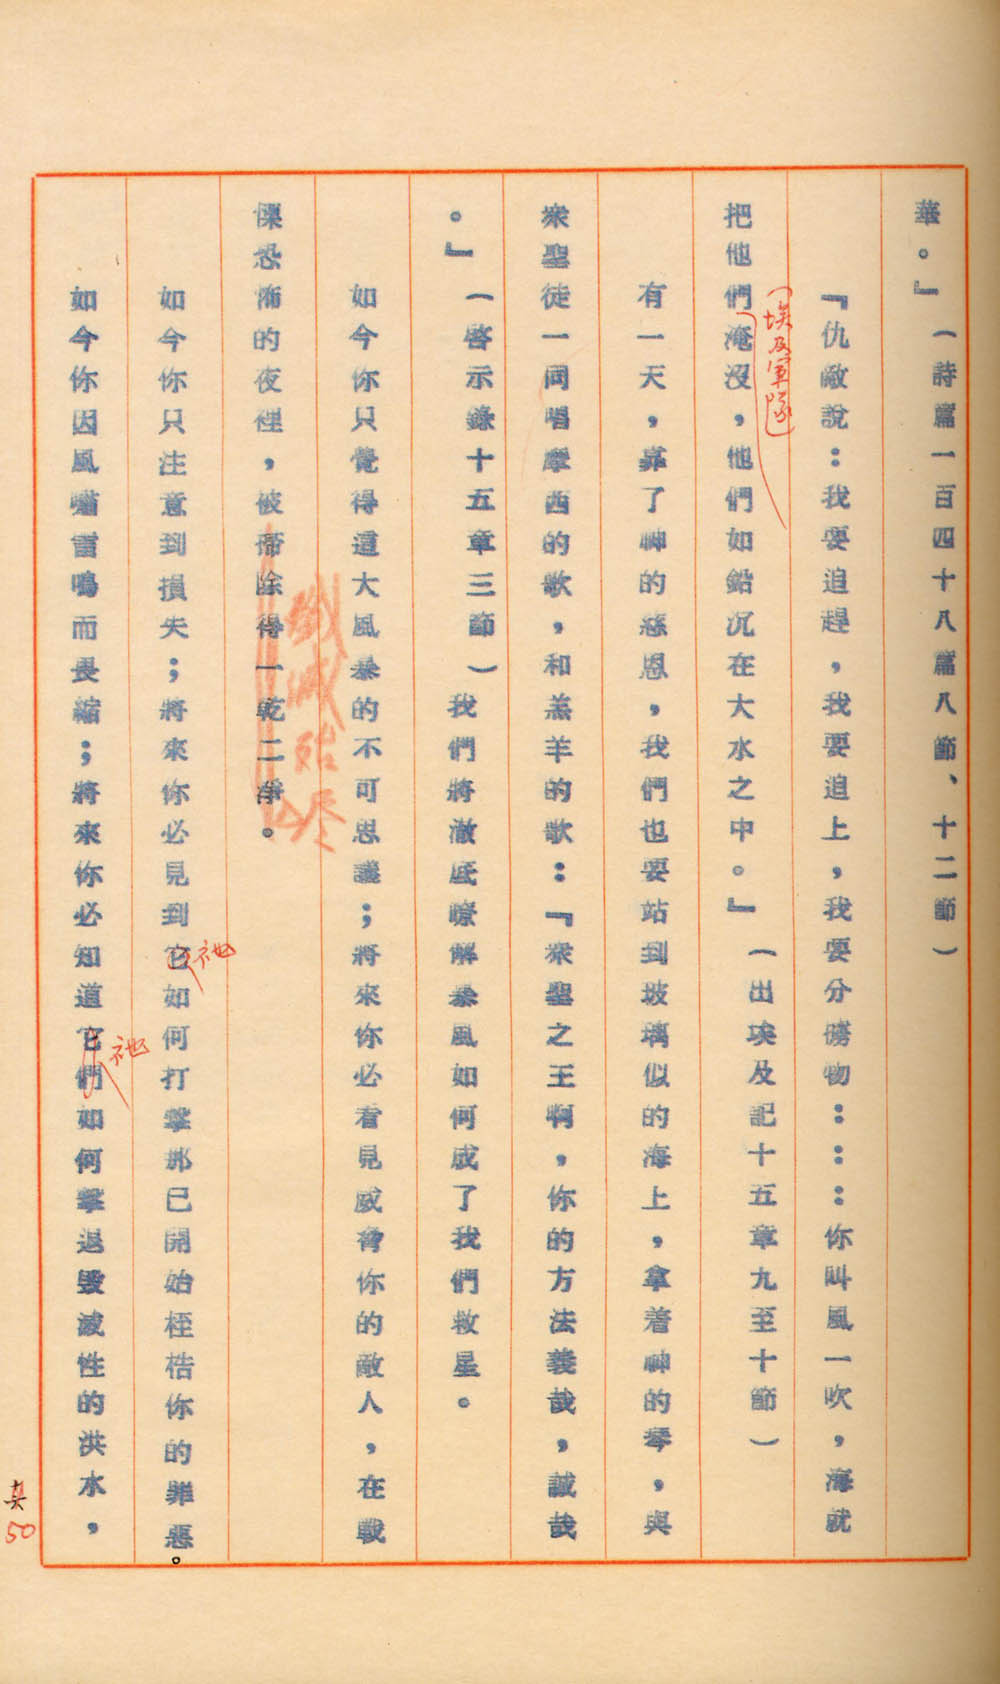 華。』（詩篇一百四十八篇八節、十二節）
『仇敵說：我要追趕，我要追上，我要分擄物：：：你叫風一吹，海就
（埃及軍隊）
把他們淹沒，他們如鉛沉在大水之中。』（出埃及記十五章九至十節）
有一天，靠了神的慈恩，我們也要站到玻璃似的海上，拿着神的琴，與
衆聖徒一同唱摩西的歌，和羔羊的歌：『衆聖之王啊，你的方法義哉，誠哉
。』（啓示錄十五章三節）我們將澈底瞭解暴風如何成了我們救星。
如今你只覺得這大風暴的不可思議；將來你必看見威脅你的敵人，在戰
殲滅殆尽
慄恐怖的夜裡，被掃除得一乾二淨。
如今你只注意到損失；將來你必見到它如何打擊那已開始桎梏你的罪惡。
祂
如今你因風嘯雷鳴而畏縮；將來你必知道它們如何擊退毀滅性的洪水，
祂
真50